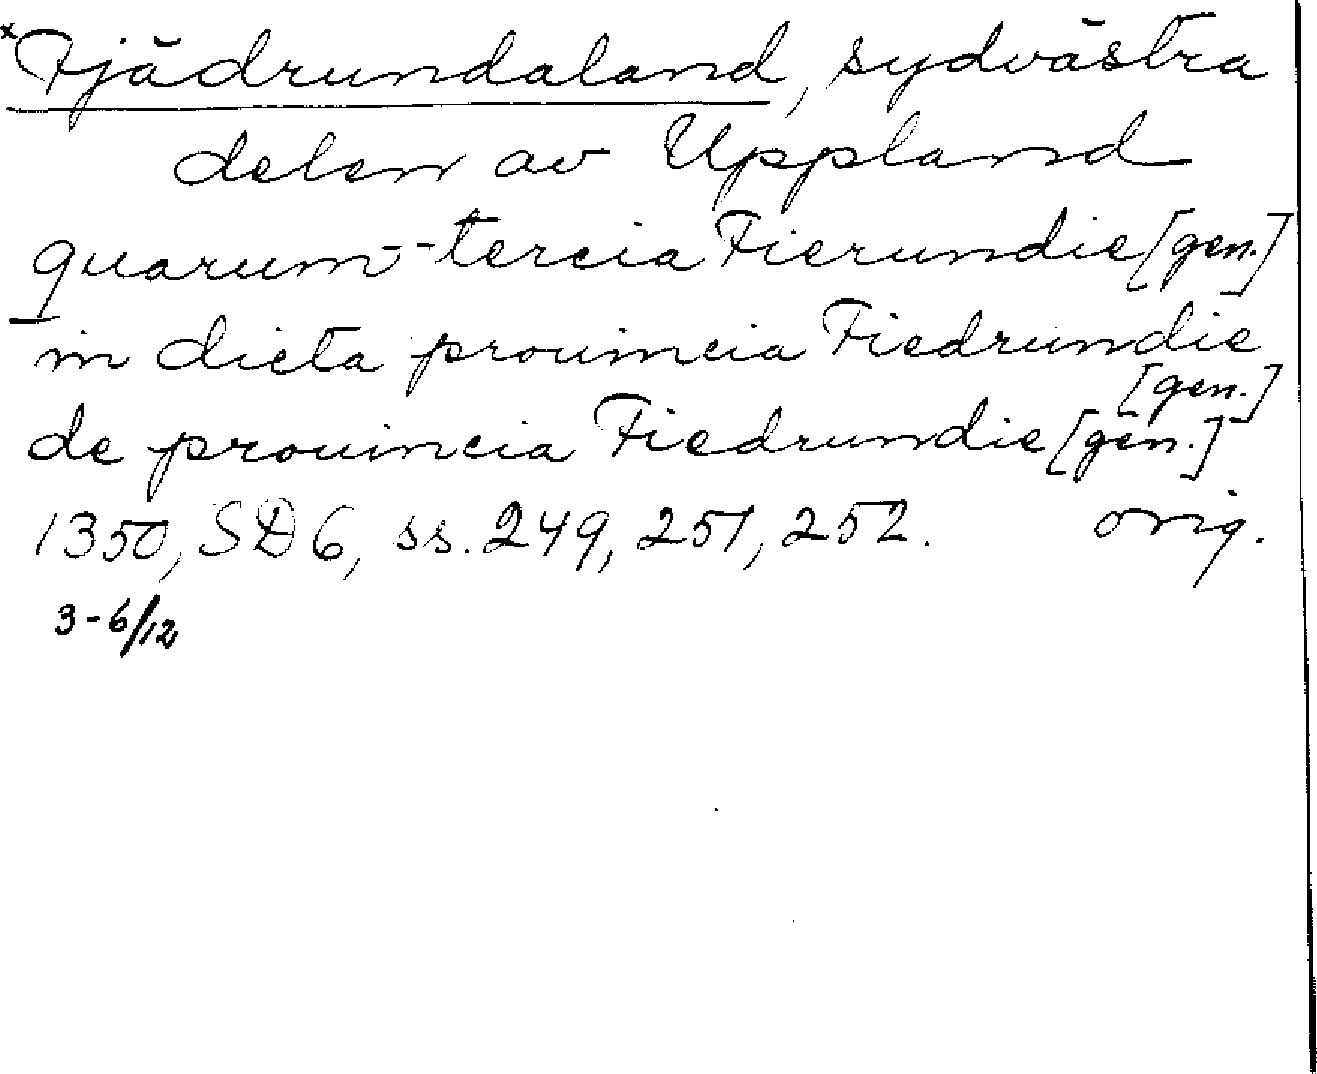 ×Fjädrundaland, sydvästra
delen av Uppland
quarum--tercia Fierundie [gen.]
in dicta prouincia Fiedrundie
[gen.]
de prouincia Fiedrundie [gen.]
1350, SD 6, ss. 249, 251, 252. orig.
3-6/12